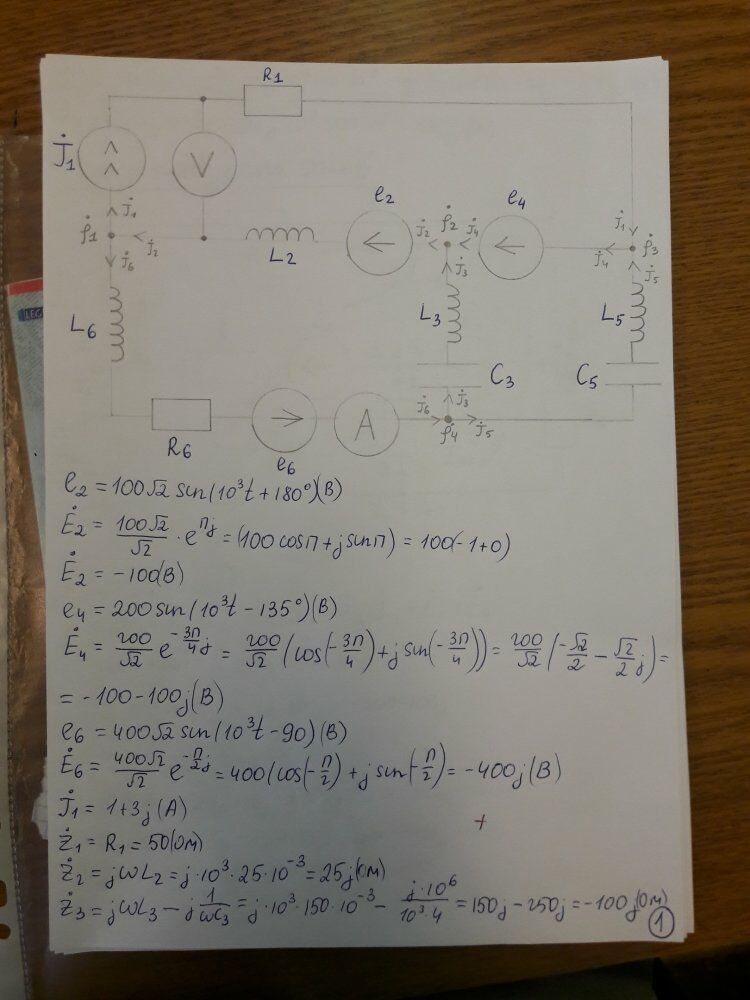 R1
J̇1
V
e2
e4
J̇1
φ̇1
J̇2
J̇2
φ̇2
J̇4
J̇1
φ̇3
J̇4
J̇6
L2
J̇3
J̇5
L6
L3
L5
C3
C5
J̇6
J̇3
R6
e6
A
φ̇4
J̇5
e2 = 100√2 sin(10³t + 180°)(В)
Ė2 = 100√2/√2 · e^πj = (100 cosπ + j sinπ) = 100(-1+0)
Ė2 = -100(В)
e4 = 200 sin(10³t - 135°)(В)
Ė4 = 200/√2 e^-3π/4 j = 200/√2 (cos(-3π/4) + j sin(-3π/4)) = 200/√2 (-√2/2 - √2/2 j) =
= -100 - 100j (В)
e6 = 400√2 sin(10³t - 90)(В)
Ė6 = 400√2/√2 e^-π/2 j = 400(cos(-π/2) + j sin(-π/2) = -400j (В)
J̇1 = 1+3j (А)
+
Ż1 = R1 = 50(Ом)
Ż2 = jωL2 = j·10³·25·10⁻³ = 25j(Ом)
Ż3 = jωL3 - j 1/ωC3 = j·10³·150·10⁻³ - j·10⁶/10³·4 = 150j - 250j = -100j(Ом)
1